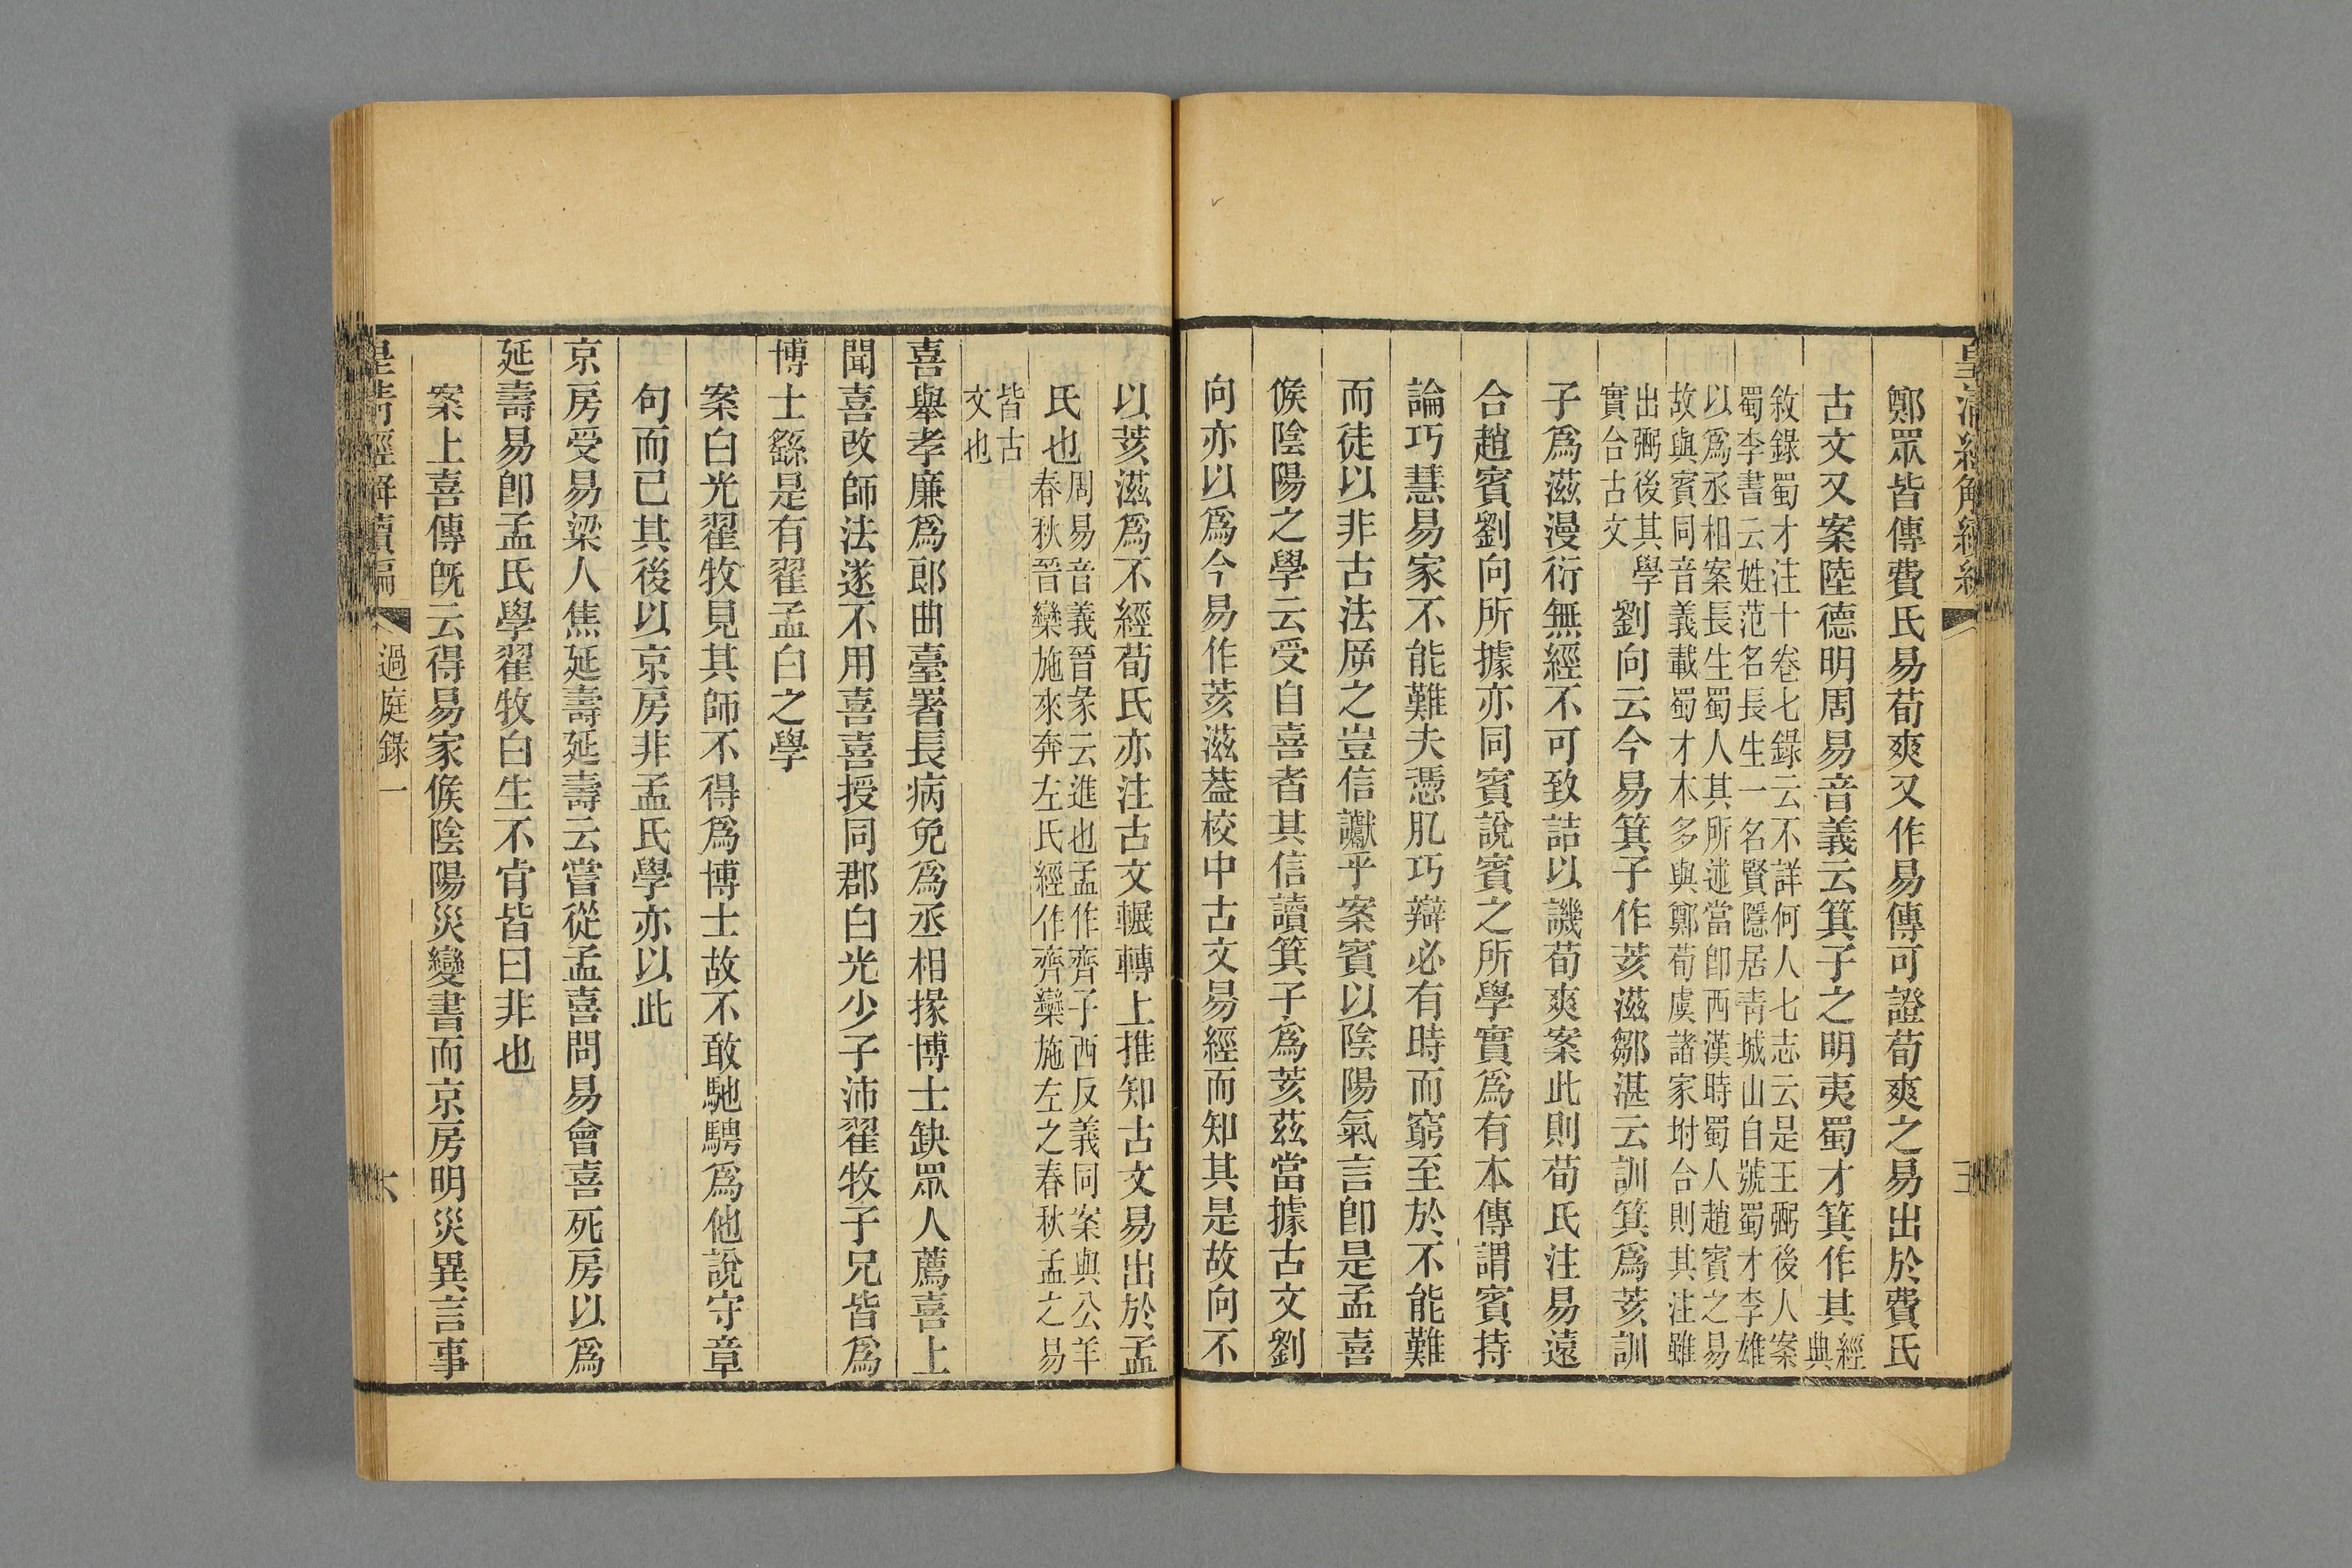 鄭眾皆傳費氏易荀爽又作易傳可證荀爽之易出於費氏
古文又案陸德明周易音義云箕子之明夷蜀才箕作其經
典
敘錄蜀才注十卷七錄云不詳何人七志云是王弼後人案
蜀李書云姓范名長生一名賢隱居青城山自號蜀才李雄
以爲丞相案長生蜀人其所述當卽西漢時蜀人趙賓之易
故與賓同音義載蜀才本多與鄭荀虞諸家坿合則其注雖
出弼後其學
實合古文
劉向云今易箕子作荄滋鄒湛云訓箕爲荄訓
子爲滋漫衍無經不可致詰以譏荀爽案此則荀氏注易遠
合趙賓劉向所據亦同賓說賓之所學實爲有本傳謂賓持
論巧慧易家不能難夫憑肊巧辯必有時而窮至於不能難
而徒以非古法廢之豈信讞乎案賓以陰陽氣言卽是孟喜
候陰陽之學云受自喜者其信讀箕子爲荄茲當據古文劉
向亦以爲今易作荄滋葢校中古文易經而知其是故向不
以荄滋爲不經荀氏亦注古文輾轉上推知古文易出於孟
氏也
周易音義晉彖云進也孟作齊子西反義同案與公羊
春秋晉欒施來奔左氏經作齊欒施左之春秋孟之易
皆古
文也
喜舉孝廉爲郎曲臺署長病免爲丞相掾博士缺眾人薦喜上
聞喜改師法遂不用喜喜授同郡白光少子沛翟牧子兄皆爲
博士繇是有翟孟白之學
案白光翟牧見其師不得爲博士故不敢馳騁爲他說守章
句而已其後以京房非孟氏學亦以此
京房受易梁人焦延壽延壽云嘗從孟喜問易會喜死房以爲
延壽易卽孟氏學翟牧白生不肯皆曰非也
案上喜傳旣云得易家候陰陽災變書而京房明災異言事
皇清經解續編
過庭錄一
六